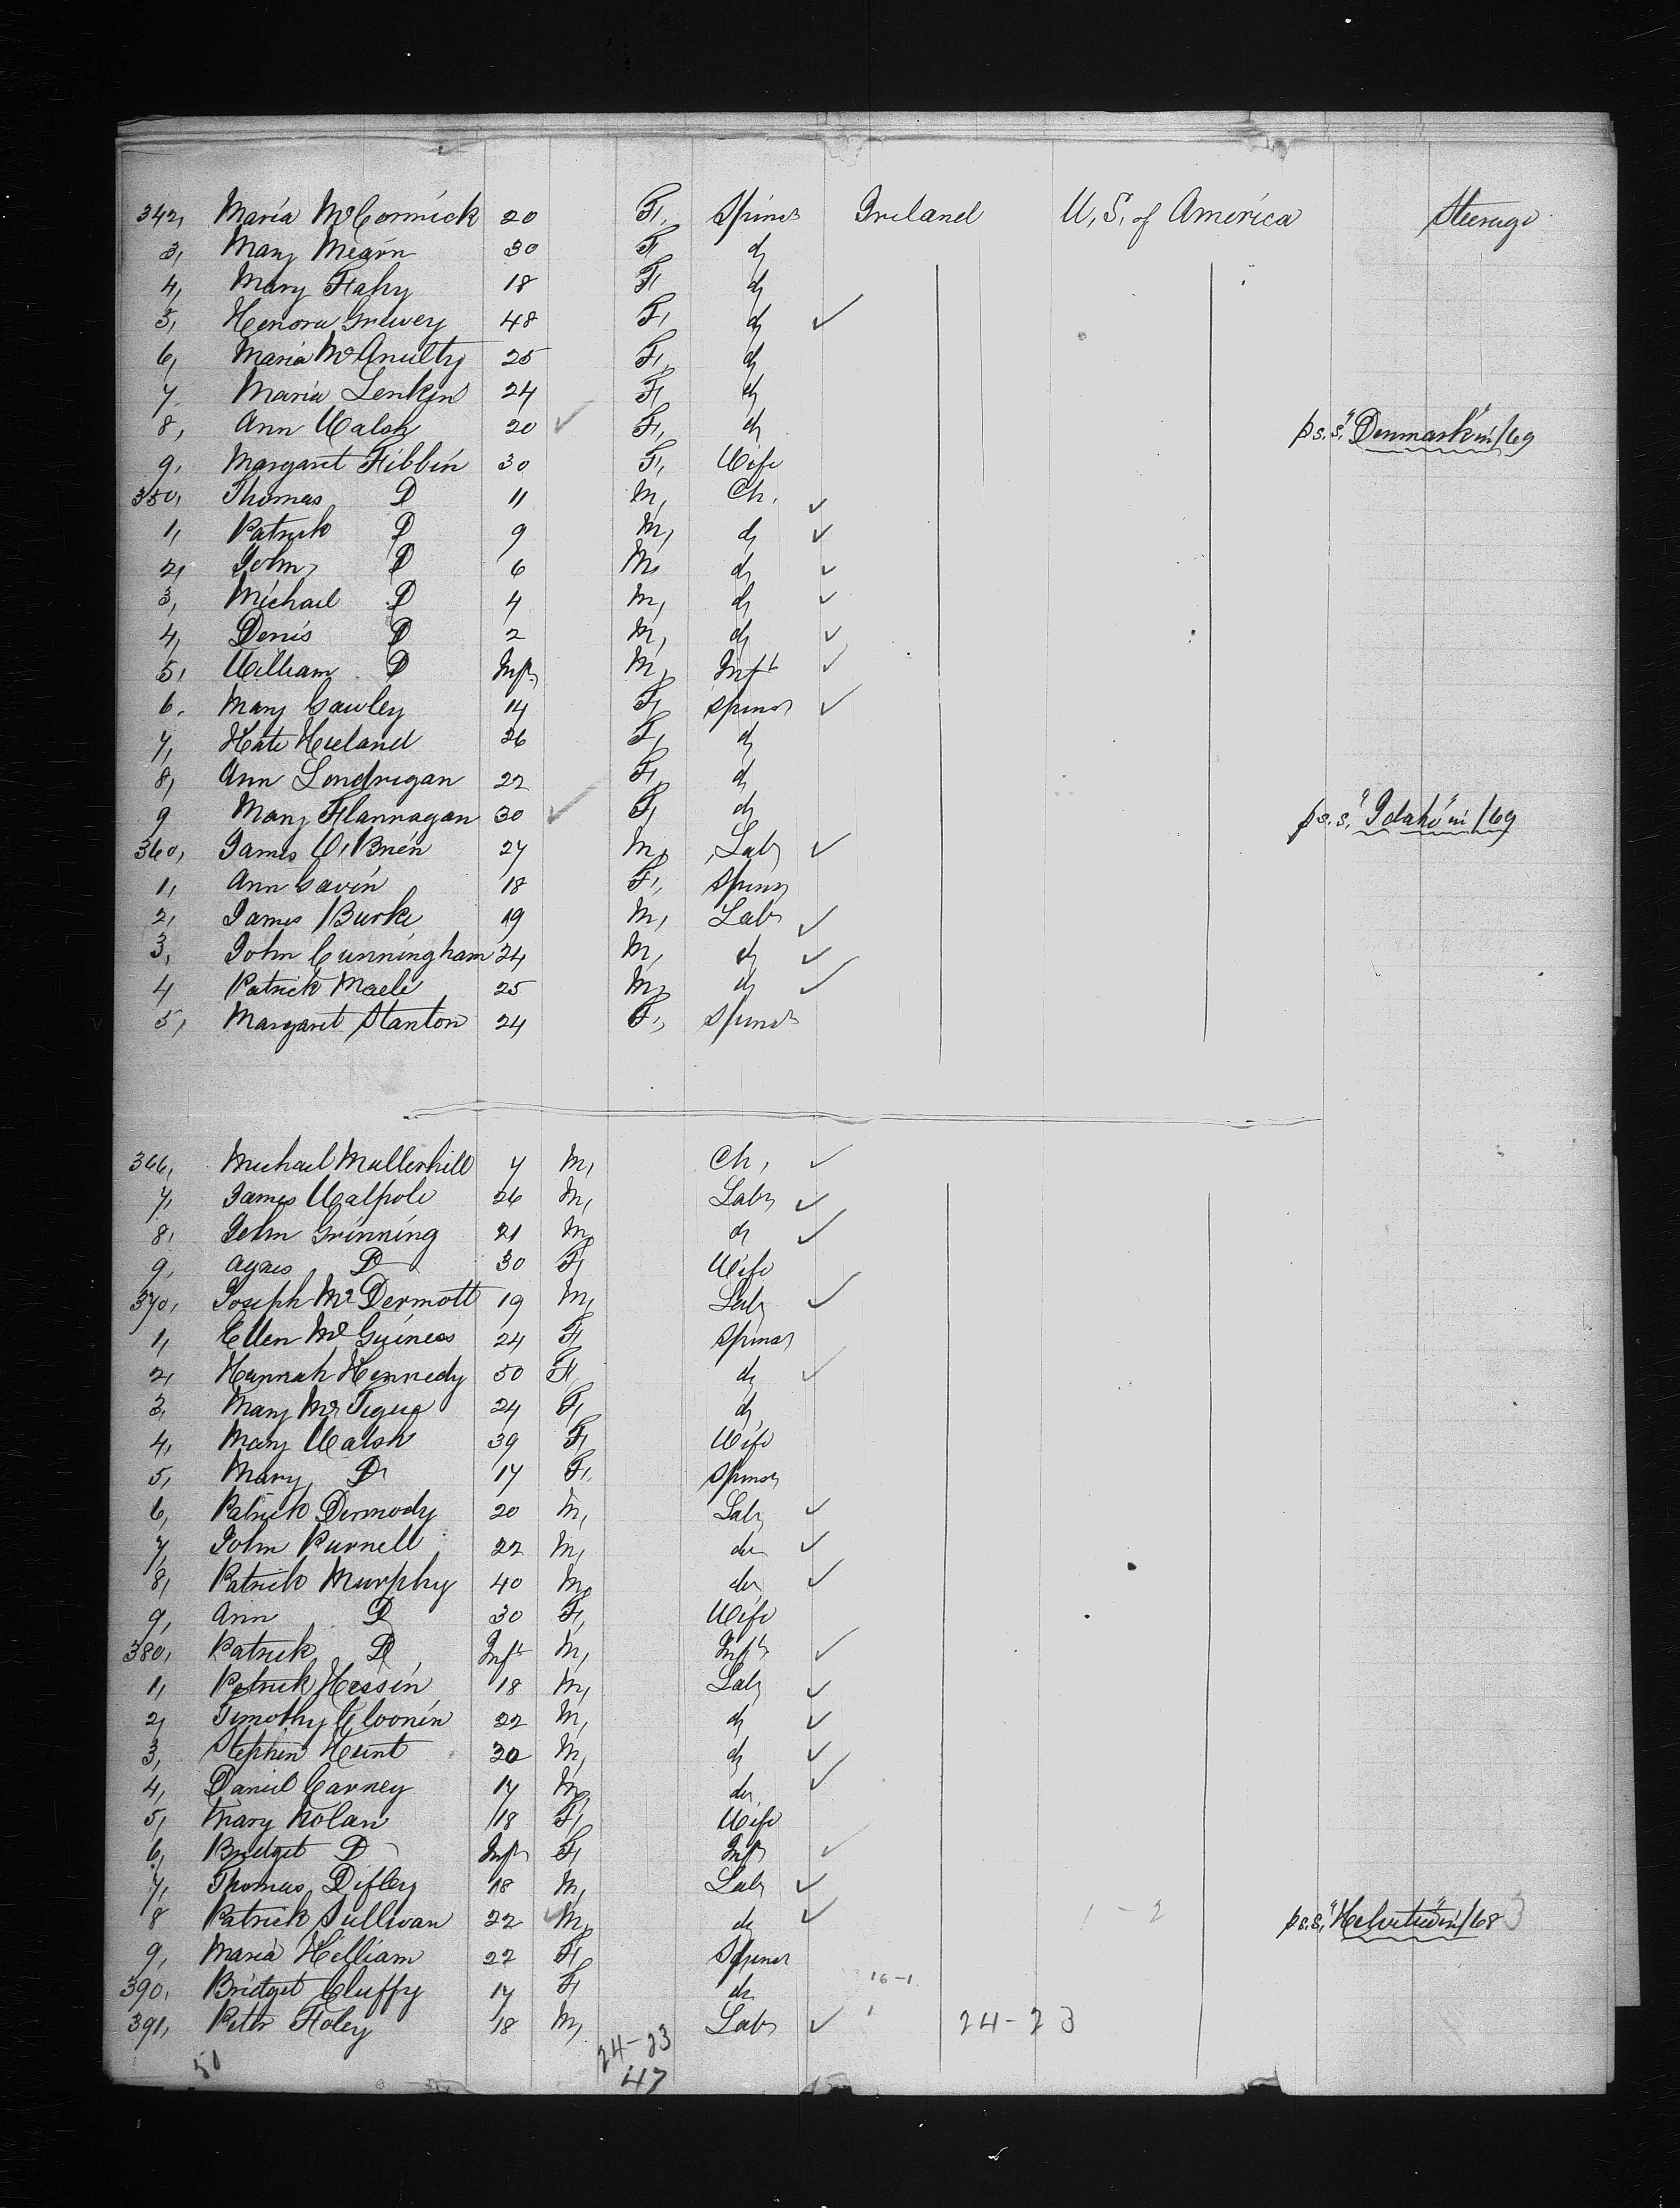 342, Maria McCormick 20 F, Spinsr Ireland U, S, of America Steerage
3, Mary Mearn 30 F do
4, Mary Fahy 18 F, do
5, Honora 48 F, do ✓
6, Maria McAnulty 25 F, do
7, Maria Lenkin 24 F, do
8, Ann Walsh 20 ✓ F, do p s.s. "Denmark" in /69
9, Margaret Fibbin 30 F, Wife
350, Thomas Do 11 M, Ch. ✓
1, Patrick Do 9 M, do ✓
2, John Do 6 M, do ✓
3, Michael Do 4 M, do ✓
4, Denis Do 2 M, do ✓
5, William Do Inft M, Inft ✓
6. Mary Gawley 14 F, Spinsr ✓
7, Kate Hieland 26 F, do
8, Ann Londrigan 22 F, do
9 Mary Flannagan 30 ✓ F, do p s.s. "Idaho" in /69
360, James O'Brien 27 M, Labr ✓
1, Ann Gavin 18 F, Spinsr
2, James Burke 19 M, Labr ✓
3, John Cunningham 24 M, do ✓
4 Patrick Maele 25 M, do ✓
5, Margaret Stanton 24 F, Spinsr
366, Michael Mullerhill 7 M, Ch, ✓
7, James Walpole 26 M, Labr ✓
8, John Grinning 21 M, do ✓
9, Agnes Do 30 F, Wife
370, Joseph McDermott 19 M, Labr ✓
1, Ellen McGuiness 24 F, Spinsr
2, Hannah Kennedy 50 F, do ✓
3, Mary McTigue 24 F, do
4, Mary Walsh 39 F, Wife
5, Mary Do 17 F, Spinsr
6, Patrick Dermody 20 M, Labr ✓
7, John Purnell 22 M, do ✓
8, Patrick Murphy 40 M, do ✓
9, Ann Do 30 F, Wife
380, Patrick Do Inft M, Inft ✓
1, Patrick Hessin 18 M, Labr ✓
2, Timothy Cloonin 22 M, do ✓
3, Stephen Hunt 30 M, do ✓
4, Daniel Carney 17 M, do ✓
5, Mary Nolan 18 F, Wife
6, Bridget Do Inft F, Inft ✓
7, Thomas Difley 18 M, Labr ✓
8 Patrick Sullivan 22 ✓ M, do ✓ 1 - 2 p s.s. "Helvetia" in /68 3
9, Maria Killiam 22 F, Spinsr
390, Bridget Cluffy 17 F, do 16-1
391, Peter Foley 18 M, Labr ✓ 24-23
50 24-23
47